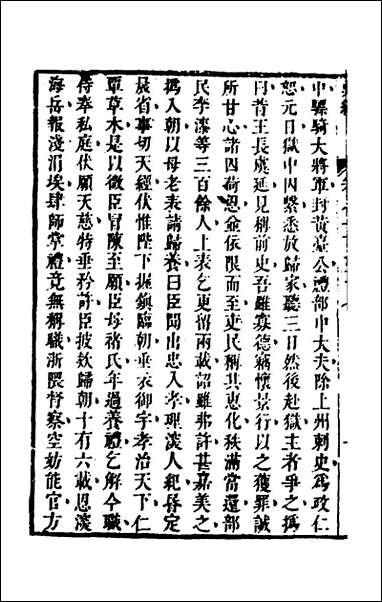 中驃騎大將軍封黃臺公禮部中大夫除上州刺史爲政仁
恕元日獄中囚繫悉放歸家聽三日然後赴獄主者爭之撝
曰昔王長虞延見稱前史吾雖寡德竊懷景行以之獲罪誠
所甘心諸囚荷恩並依限而至吏民稱其惠化秩滿當還部
民李漆等三百餘人上表乞更留兩載詔雖弗許甚嘉美之
撝入朝以母老表請歸養曰臣聞出忠入孝理深人紀昏定
晨省事切天經伏惟陛下握鏡臨朝垂衣御宇孝治天下仁
覃草木是以微臣冒陳至願臣母褚氏年過養禮乞解今職
侍奉私庭伏願天慈特垂矜許臣披款歸朝十有六載恩深
海岳報淺涓埃肆師掌禮竟無稱職浙隈督察空妨能官方